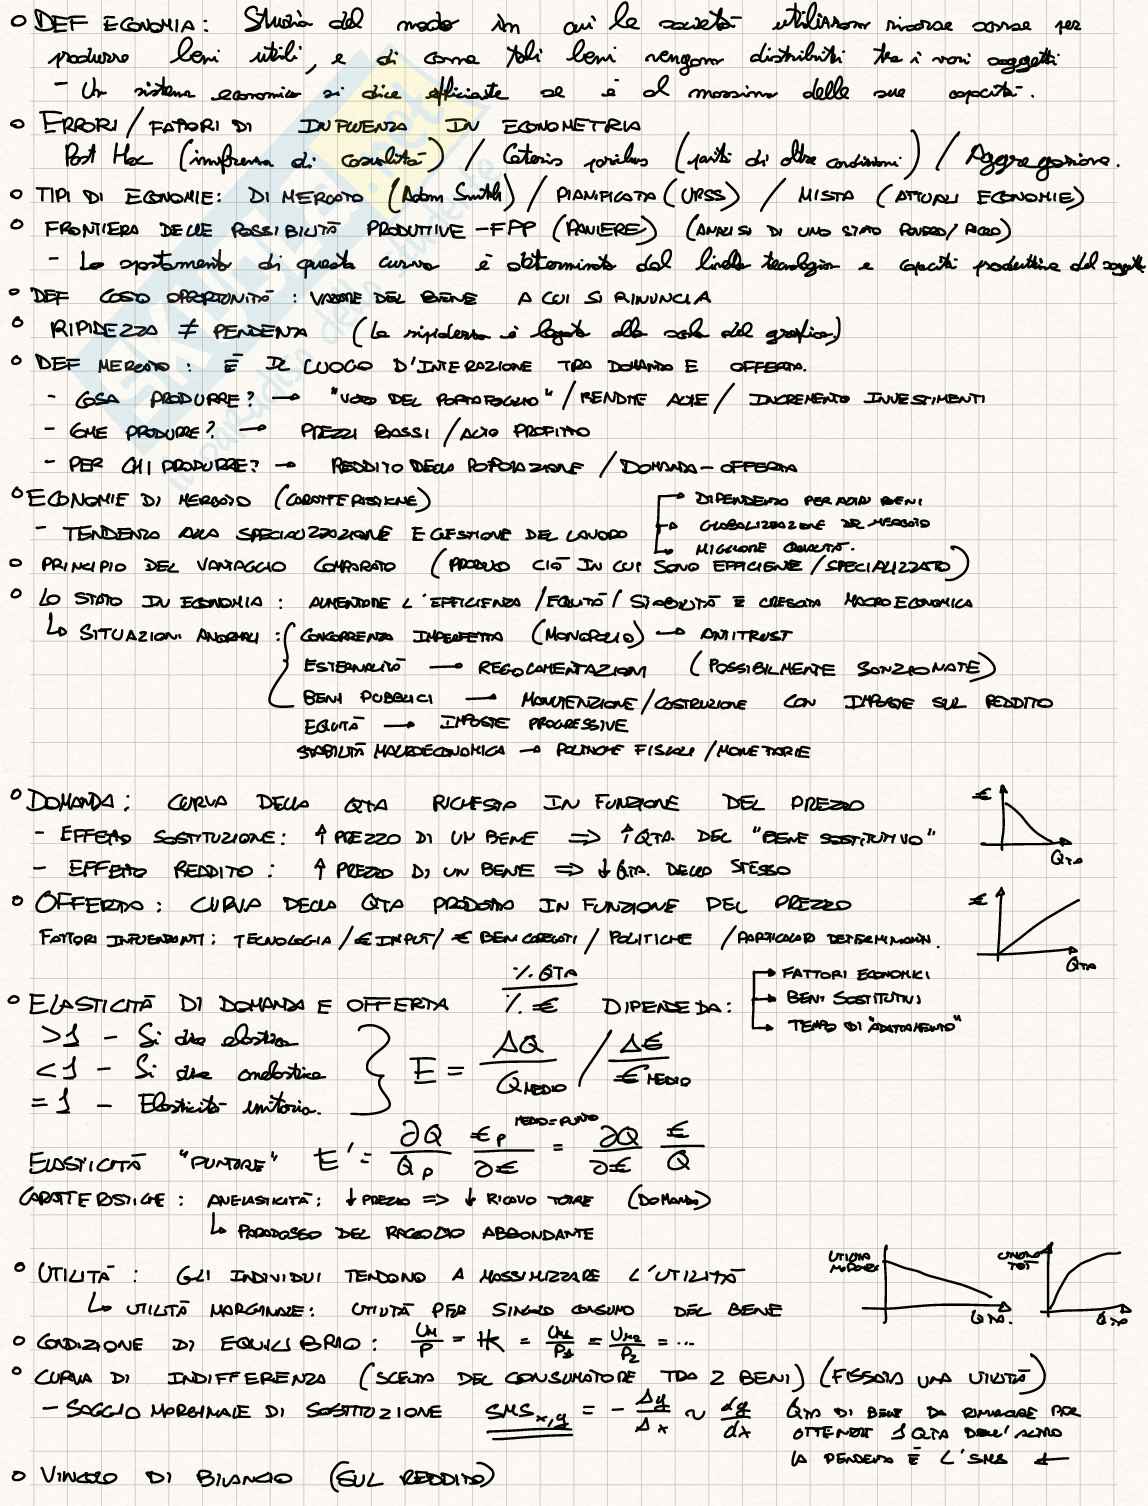 DEF ECONOMIA: Studio del modo in cui le società utilizzano risorse scarse per
produrre beni utili, e di come tali beni vengono distribuiti tra i vari soggetti
- Un sistema economico si dice efficiente se è al massimo delle sue capacità.
ERRORI / FATTORI DI INFLUENZA IN ECONOMETRIA
Post Hoc (inferenza di casualità) / Ceteris paribus (parità di altre condizioni) / Aggregazione.
TIPI DI ECONOMIE: DI MERCATO (Adam Smith) / PIANIFICATA (URSS) / MISTA (ATTUALI ECONOMIE)
FRONTIERA DELLE POSSIBILITÀ PRODUTTIVE - FPP (PANIERE) (ANALISI DI UNO STATO POVERO/RICCO)
- Lo spostamento di questa curva è determinato dal livello tecnologico e capacità produttiva del
DEF COSTO OPPORTUNITÀ: VALORE DEL BENE A CUI SI RINUNCIA
RIPIDEZZA ≠ PENDENZA (La ripidezza è legata alla scala del grafico)
DEF MERCATO: È IL LUOGO D'INTERAZIONE TRA DOMANDA E OFFERTA.
- COSA PRODURRE? → "VOTO DEL PORTAFOGLIO" / RENDITE ALTE / INCREMENTO INVESTIMENTI
- COME PRODURRE? → PREZZI BASSI / ALTO PROFITTO
- PER CHI PRODURRE? → REDDITO DELLA POPOLAZIONE / DOMANDA - OFFERTA
ECONOMIE DI MERCATO (CARATTERISTICHE)
→ DIPENDENZA PER ALTRI BENI
- TENDENZA ALLA SPECIALIZZAZIONE E GESTIONE DEL LAVORO → GLOBALIZZAZIONE DEL MERCATO
→ MIGLIORE QUALITÀ.
PRINCIPIO DEL VANTAGGIO COMPARATO (PRODUCO CIÒ IN CUI SONO EFFICIENTE / SPECIALIZZATO)
LO STATO IN ECONOMIA: AUMENTARE L'EFFICIENZA / EQUITÀ / STABILITÀ E CRESCITA MACROECONOMICA
↳ SITUAZIONI ANORMALI: CONCORRENZA IMPERFETTA (MONOPOLIO) → ANTITRUST
ESTERNALITÀ → REGOLAMENTAZIONI (POSSIBILMENTE SANZIONATE)
BENI PUBBLICI → MANUTENZIONE / COSTRUZIONE CON IMPOSTE SUL REDDITO
EQUITÀ → IMPOSTE PROGRESSIVE
STABILITÀ MACROECONOMICA → POLITICHE FISCALI / MONETARIE
DOMANDA: CURVA DELLA QTA RICHIESTA IN FUNZIONE DEL PREZZO
€
- EFFETTO SOSTITUZIONE: ↑ PREZZO DI UN BENE ⇒ ↑ QTA. DEL "BENE SOSTITUTIVO"
QTA
- EFFETTO REDDITO: ↑ PREZZO DI UN BENE ⇒ ↓ QTA. DELLO STESSO
OFFERTA: CURVA DELLA QTA PRODOTTA IN FUNZIONE DEL PREZZO
€
FATTORI INFLUENZANTI: TECNOLOGIA / € INPUT / € BENI CORRELATI / POLITICHE / PARTICOLARI DETERMINAZIN.
QTA
ELASTICITÀ DI DOMANDA E OFFERTA % QTA / % € DIPENDE DA:
→ FATTORI ECONOMICI
→ BENI SOSTITUTIVI
→ TEMPO DI "ADATTAMENTO"
>1 - Si dice elastica
<1 - Si dice anelastica
=1 - Elasticità unitaria.
E = ΔQ / Q MEDIO / Δ€ / € MEDIO
ELASTICITÀ "PUNTUALE" E' = ∂Q / Q P € P / ∂€ MEDIO=PUNTO = ∂Q / ∂€ € / Q
CARATTERISTICHE: ANELASTICITÀ: ↓ PREZZO ⇒ ↓ RICAVO TOTALE (DOMANDA)
↳ PARADOSSO DEL RACCOLTO ABBONDANTE
UTILITÀ: GLI INDIVIDUI TENDONO A MASSIMIZZARE L'UTILITÀ
↳ UTILITÀ MARGINALE: UTILITÀ PER SINGOLO CONSUMO DEL BENE
UTILITÀ MARGINALE
QTA.
UTILITÀ TOT
QTA
CONDIZIONE DI EQUILIBRIO: UM / P = HK = UM1 / P1 = UM2 / P2 = ...
CURVA DI INDIFFERENZA (SCELTA DEL CONSUMATORE TRA 2 BENI) (FISSATA UNA UTILITÀ)
- SAGGIO MARGINALE DI SOSTITUZIONE SMS x,y = - Δy / Δx ~ dy / dx QTA DI BENE DA RINUNCIARE PER
OTTENERE 1 QTA DELL'ALTRO
LA PENDENZA È L'SMS ←
VINCOLO DI BILANCIO (SUL REDDITO)